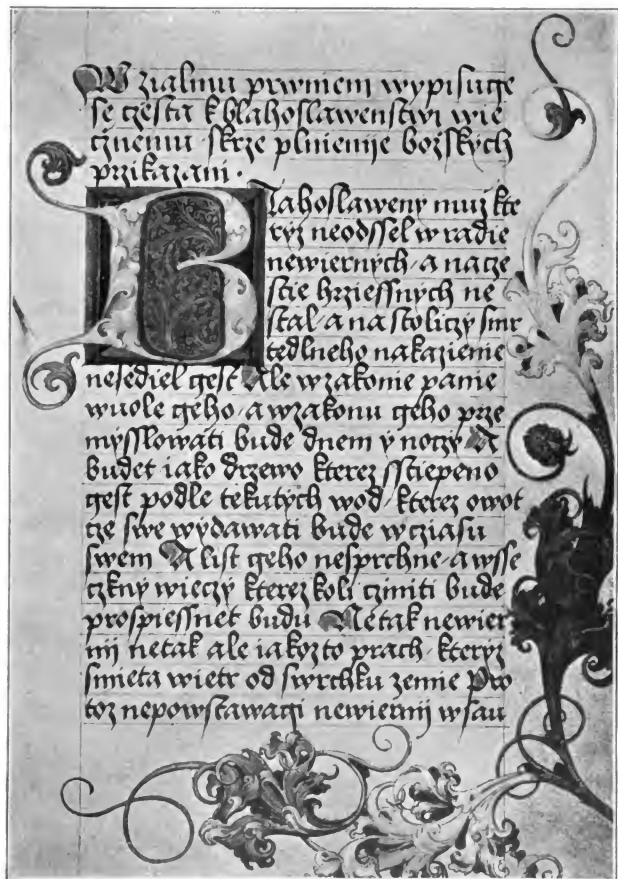 W zialmu prwniem wypisuge
se czesta k blahoslawenstwi wie
cznemu skrze plnienije bozskych
przikazani .
Blahoslaweny muz kte
ryz neodssel w radie
newiernych / a na cze
stie hrziessnych ne
stal / a na stoliczy smr
tedlneho nakazienie
nesediel gest Ale w zakonie panie
wuole geho / a w zakonu geho prze
mysslowati bude dnem y noczy A
budet iako drzewo kterez sstiepeno
gest podle tekutych wod / kterez owot
cze swe wydawati bude w cziasu
swem A list geho nesprchne / a wsse
czkny wieczy kterez koli czimiti bude
prospiessnet budu Ne tak newier
nij ne tak ale iakozto prach / kteryz
smieta wietr od swrchku zemie Pro
toz nepowstawagi newiernij w sau